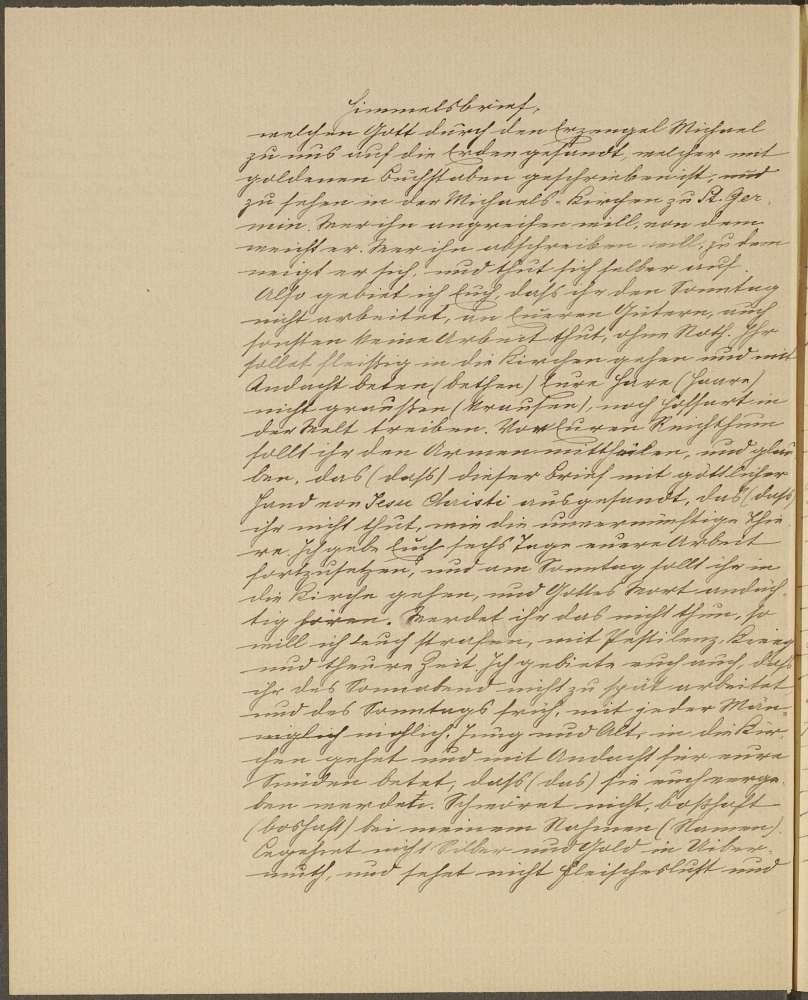 Himmelsbrief,
welchen Gott durch den Erzengel Michael
zu uns auf die Erden gesandt, welcher mit
goldenen Buchstaben geschrieben ist, und
zu sehen in der Michaels-Kirchen zu St. Ger-
min. Wer ihn angreifen will, von dem
weicht er. Wer ihn abschreiben will, zu dem
neigt er sich, und thut sich selber auf.
Also gebiet ich Euch, dass ihr den Sonntag
nicht arbeitet, an Eueren Gütern, auch
sonsten keine Arbeit thut, ohne Noth. Ihr
sollet fleissig in die Kirchen gehen und mit
Andacht beten (bethen) Eure Hare (Haare)
nicht graussen (krausen), noch Hoffart in
der Welt treiben. Von Euren Reichthum
sollt ihr den Armen mittheilen, und glau-
ben, das (dass) dieser Brief mit göttlicher
Hand von Jesu Christi ausgesandt, das (dass)
ihr nicht thut, wie die unvernünftige Thie-
re. Ich gebe Euch sechs Tage euere Arbeit
fortzusetzen, und am Sonntag sollt ihr in
die Kirche gehen, und Gottes Wort andäch-
tig hören. Werdet ihr das nicht thun, so
will ich Euch strafen, mit Pestilenz, Krieg
und theure Zeit. Ich gebiete euch auch, dass
ihr des Sonnabend nicht zu spät arbeitet,
und des Sonntags früh, mit jeder Män-
niglich Jung und Alt, in die Kir-
chen gehet und mit Andacht für eure
Sünden betet, dass (das) sie euch verge-
ben werden. Schwöret nicht, bosshaft
(boshaft) bei meinem Nahmen (Namen).
Begehret nicht Silber und Gold in Ueber-
muth, und sehet nicht Fleischeslust und